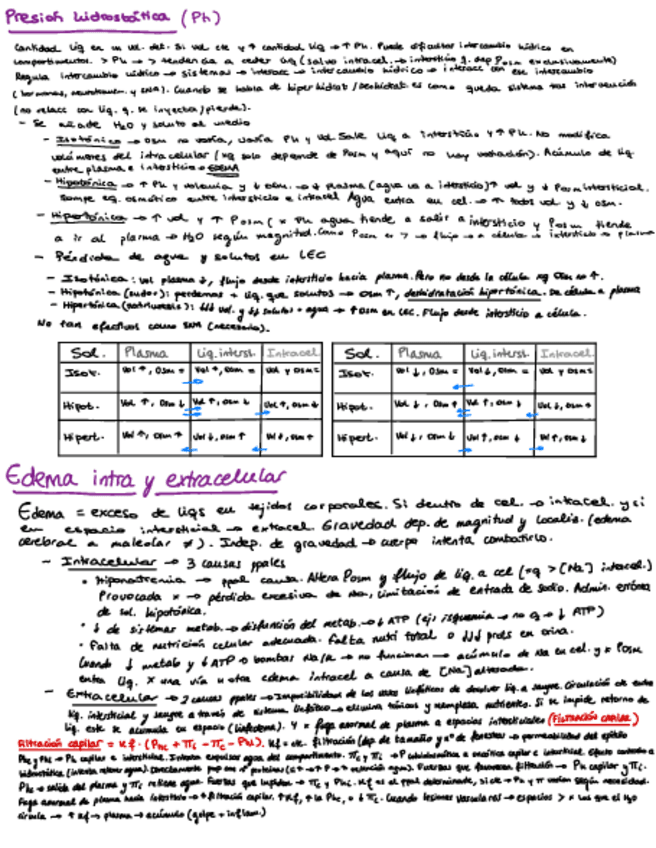 Presión hidrostática (Ph)
Cantidad liq en un vol. det. Si vol cte y ↑ cantidad liq → ↑ Ph. Puede dificultar intercambio hídrico en
compartimentos. > Ph → > tendencia a ceder liq (salvo intracel. → intersticio q. dep Posm exclusivamente)
Regula intercambio hídrico → sistemas → interacc → intercambio hídrico → interacc con ese intercambio
(hormonas, neurotransm. y SNA). Cuando se habla de hiperhidrat/deshidrat es como queda sistema tras intervención
(no relacc con liq. q. se inyecta/pierde).
- Se añade H2O y soluto al medio
- Isotónica → osm no varía, varía Ph y vol. Sale liq a intersticio y ↑ Ph. No modifica
volúmenes del intracelular (xq solo depende de Posm y aquí no hay variación). Acúmulo de liq
entre plasma e intersticio → EDEMA
- Hipotónica → ↑ Ph y volemia y ↓ osm. → plasma (agua va a intersticio) ↑ vol y ↓ Posm intersticial.
Rompe eq. osmótico entre intersticio e intracel. Agua entra en cel. → ↑ todos vol y ↓ osm.
- Hipertónica → ↑ vol y ↑ Posm (x Ph agua tiende a salir a intersticio y Posm tiende
a ir al plasma → H2O según magnitud. Como Posm es > → flujo → célula → intersticio → plasma
- Pérdida de agua y solutos en LEC
- Isotónica: vol plasma ↓, flujo desde intersticio hacia plasma. Pero no desde la célula xq osm no ↑.
- Hipotónica (sudor): perdemos + liq. que solutos → osm ↑, deshidratación hipertónica. De célula a plasma
- Hipertónica: ↓↓ vol. y ↓↓ solutos + agua → ↑ osm en LEC. Flujo desde intersticio a célula.
No tan efectivos como SNA (necesario).
Sol. Plasma Liq. interst. Intracel.
Isot. Vol ↑, Osm = Vol ↑, Osm = Vol y osm =
Hipot. Vol ↑, Osm ↓ Vol ↑, Osm ↓ Vol ↑, Osm ↓
Hipert. Vol ↑, Osm ↑ Vol ↓, Osm ↑ Vol ↓, Osm ↑
Sol. Plasma Liq. interst. Intracel.
Isot. Vol ↓, Osm = Vol ↓, Osm = Vol y osm =
Hipot. Vol ↓, Osm ↑ Osm ↓ Vol ↓, Osm ↑
Hipert. Vol ↓, Osm ↓ Vol ↑, Osm ↓ Osm ↓
Edema intra y extracelular
Edema = exceso de liqs en tejidos corporales. Si dentro de cel. → intracel. y si
en espacio intersticial → extracel. Gravedad dep. de magnitud y localiz. (edema
cerebral a maleolar ≠). Indep. de gravedad → cuerpo intenta combatirlo.
- Intracelular → 3 causas ppales
• Hiponatremia → ppal causa. Altera Posm y flujo de liq. a cel (xq > [Na] intracel.)
Provocada x → pérdida excesiva de Na, limitación de entrada de sodio. Admin. errónea
de sol. hipotónica.
• ↓ de sistemas metab. → disfunción del metab. → ↓ ATP (ej: isquemia → no O2 → ↓ ATP)
• Falta de nutrición celular adecuada. Falta nutri total o ↓↓ prots en orina.
Cuando ↓ metab y ↓ ATP → bombas Na/K → no funcionan → acúmulo de Na en cel. y x Posm
entra liq. x una vía u otra edema intracel a causa de [Na] alterada.
- Extracelular → 2 causas ppales → Imposibilidad de los vasos linfáticos de devolver liq. a sangre. Circulación de entre
liq. intersticial y sangre a través de sistema linfático → elimina tóxicos y reemplaza nutrientes. Si se impide retorno de
liq. este se acumula en espacio (linfedema). Y = fuga anormal de plasma a espacios intersticiales (Filtración capilar)
Filtración capilar = Kf · (Phc + πi - πc - Phi). Kf = cte. filtración (dep de tamaño y nº de fenestras → permeabilidad del epitelio
Phc y Phi → Ph capilar e intersticial. Intentan expulsar agua del compartimento. πc y πi → P coloidosmótica u oncótica capilar e intersticial. Efecto contrario a
hidrostática (intenta retener agua). Fuerzas que favorecen filtración → Ph capilar y πi.
Phc → salida del plasma y πi retiene agua. Fuerzas que impiden → πc y Phi. Kf es el ppal determinante, si cte → Ph y π varían según necesidad.
Fuga anormal de plasma hacia intersticio → ↑ filtración capilar. ↑ Kf, ↑ la Phc, o ↓ πc. Cuando lesiones vasculares → espacios > x los que el H2O
circula → ↑ Kf → plasma → acúmulo (golpe + inflam.)